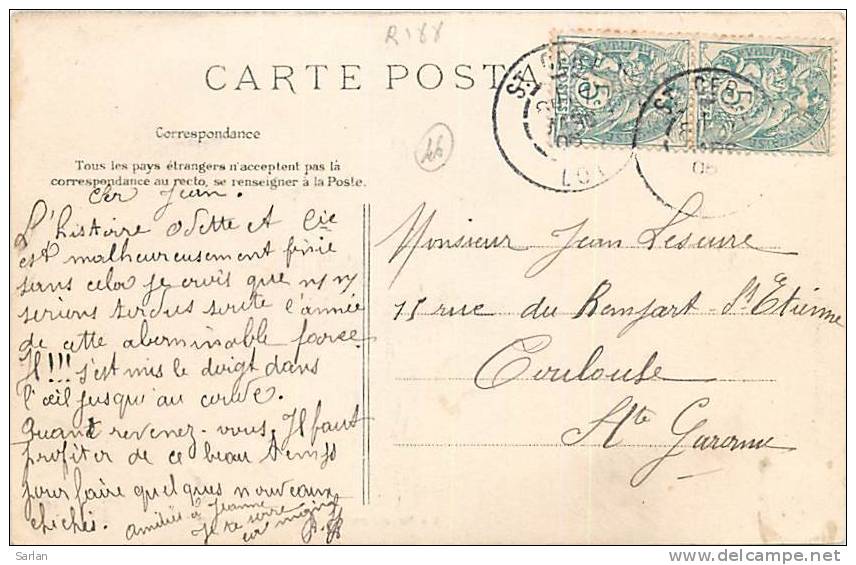 R188
CARTE POST
Correspondance
46
Tous les pays étrangers n'acceptent pas la
correspondance au recto, se renseigner à la Poste.
Cher Jean.
L'histoire Odette et Cie
est malheureusement finie
sans cela je crois que ns ns
serions tordus toute l'année
de cette abominable farce
H!!! s'est mis le doigt dans
l'œil jusqu'au coude.
Quand revenez-vous. Il faut
profiter de ce beau temps
pour faire quelques nouveaux
clichés.
amitiés à Jeanne
Je te serre
ST CERE
LOT
5c
ST CERE
5c
Monsieur Jean Leseure
15 rue du Rempart St Etienne
Toulouse
Hte Garonne
Sarlan
www.delcampe.net